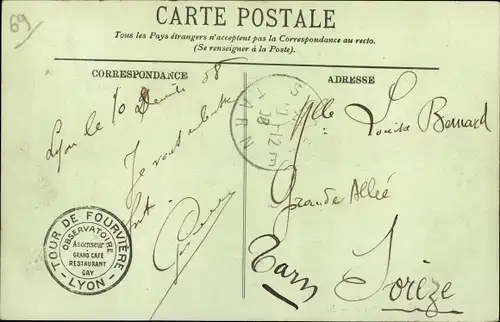 69
CARTE POSTALE
Tous les Pays étrangers n'acceptent pas la Correspondance au recto.
(Se renseigner à la Poste).
CORRESPONDANCE
ADRESSE
Lyon le 10
Je vous
TOUR DE FOURVIÈRE
OBSERVATOIRE
Ascenseur
GRAND CAFÉ
RESTAURANT
GAY
LYON
TARN
Mlle Louise Bernard
Grande Allée
Sorèze
Tarn